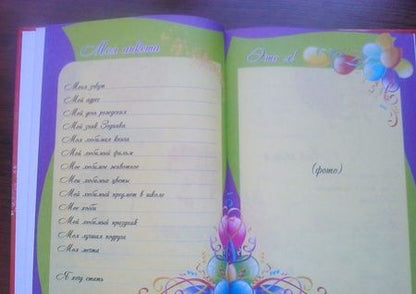 Моя анкета
Меня зовут
Мой адрес
Мой день рождения
Мой знак Зодиака
Моя любимая книга
Мой любимый фильм
Мое любимое животное
Мои любимые цветы
Мой любимый предмет в школе
Мое хобби
Мой любимый праздник
Моя лучшая подруга
Моя мечта
Я хочу стать
Это я!
(фото)